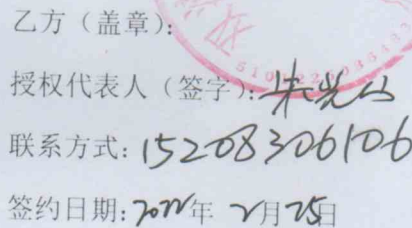 乙方（盖章）：
授权代表人（签字）：朱
联系方式：15208306106
签约日期：2022年 2月25日